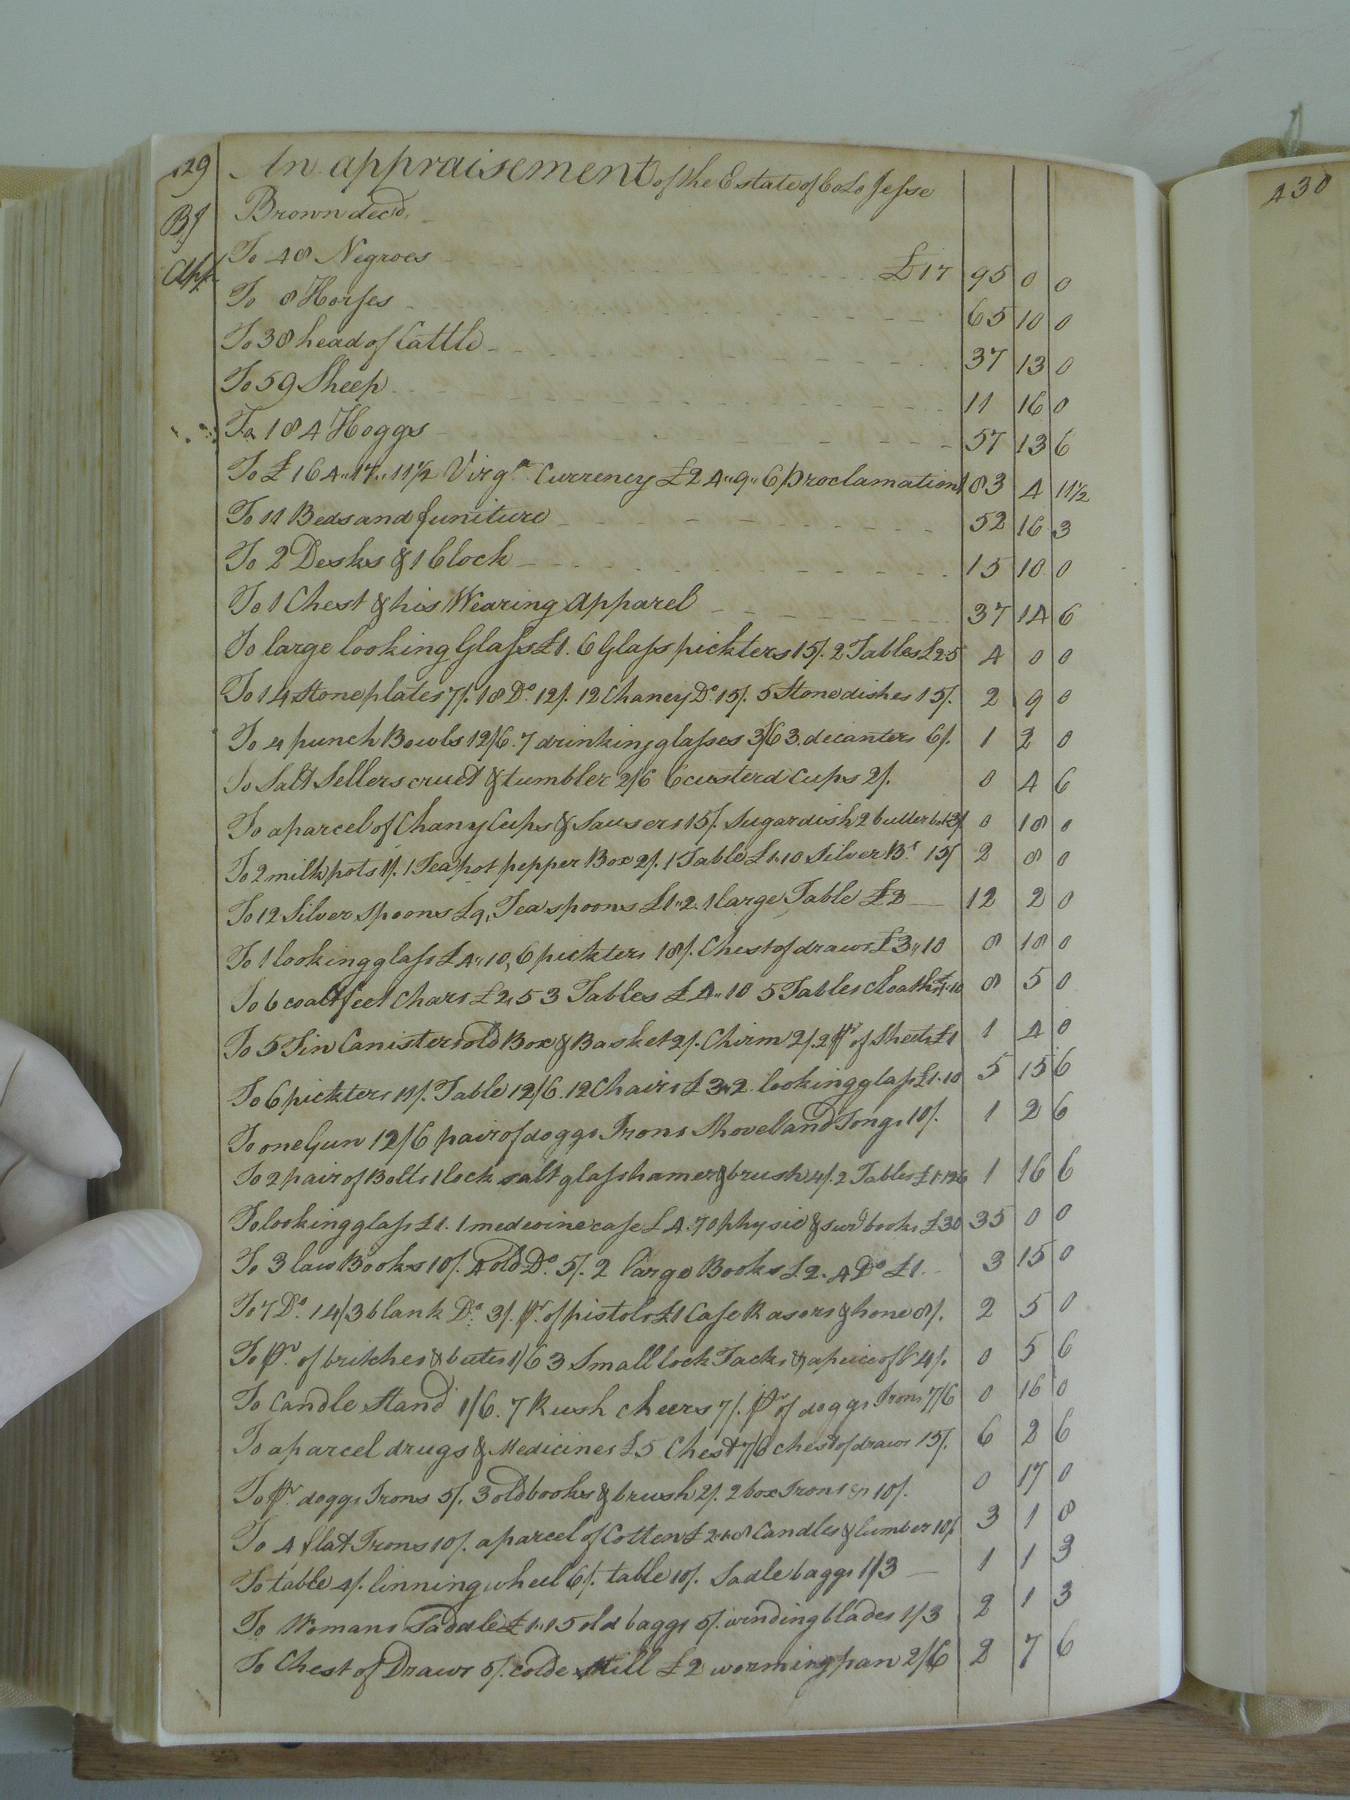 429 An appraisement of the Estate of Colo Jesse
Brown decd.
To 48 Negroes £17 95 0 0
To 8 Horses 65 10 0
To 38 head of Cattle 37 13 0
To 59 Sheep 11 16 0
To 184 Hoggs 57 13 6
To £164..17..11½ Virga. Currency £24..9..6 Proclamation 183 4 11½
To 11 Beds and funiture 52 16 3
To 2 Desks & 1 Clock 15 10 0
To 1 Chest & his Wearing Apparel 37 14 6
To large looking Glass £1. 6 Glass pickters 15/. 2 Tables £2 5 4 0 0
To 14 Stone plates 7/. 18 Do. 12/. 12 Chaney Do. 15/. 5 Stone dishes 15/. 2 9 0
To 4 punch Bowls 12/6. 7 drinking glasses 3/6 3 decanters 6/. 1 2 0
To Salt Sellers cruet & tumbler 2/6 6 custerd Cups 2/. 0 4 6
To a parcel of Chany Cups & Sausers 15/. Sugar dish 2 butter bts 3/ 0 18 0
To 2 milk pots 1/. 1 Tea pot pepper Box 2/. 1 Table £1..10 Silver B. 15/ 2 8 0
To 12 Silver Spoons £9, Tea spoons £1..2. 1 large Table £2 12 2 0
To 1 looking glass £4..10, 6 pickters 18/. Chest of draws £3..10 8 18 0
To 6 coalt feet Chars £2,5 3 Tables £4..10 5 Tables cloaths £1.10 8 5 0
To 5 Tin Canisters old Box & Basket 2/. Chirm 2/. 2 pr of Sheets £1 1 4 0
To 6 pickters 11/. Table 12/6. 12 Chairs £3..2. looking glass £1.10 5 15 6
To one Gun 12/6 pair of doggs Irons Shovel and Tongs 10/. 1 2 6
To 2 pair of Bolts 1 lock salt glass hamer & brush 4/. 2 Tables £1.12.6 1 16 6
To looking glass £1. 1 medecine case £4. 70 physic & surd books £30 35 0 0
To 3 law Books 10/. 4 old Do. 5/. 2 large Books £2. 4 Do £1. 3 15 0
To 7 Do. 14/ 3 blank Do. 3/. pr. of pistols £1 Case Rasors & hone 8/. 2 5 0
To pr. of britches & butes 1/6 3 Small lock Tacks & a peice of 4/. 0 5 6
To Candle Stand 1/6. 7 Rush cheers 7/. pr of doggs Irons 7/6 0 16 0
To a parcel drugs & Medicines £5 Chest 7/6 chest of draws 15/. 6 2 6
To pr. doggs Irons 5/. 3 old books & brush 2/. 2 box Irons 10/. 0 17 0
To 4 flat Irons 10/. a parcel of Cotten £2..1..8 Candles & lumber 10/ 3 1 8
To table 4/. linning wheel 6/. table 10/. Sadle baggs 1/3 1 1 3
To Womans Saddle £1..15 old baggs 5/. winding blades 1/3 2 1 3
To Chest of Draws 5/. colde still £2 worming pan 2/6 2 7 6
430